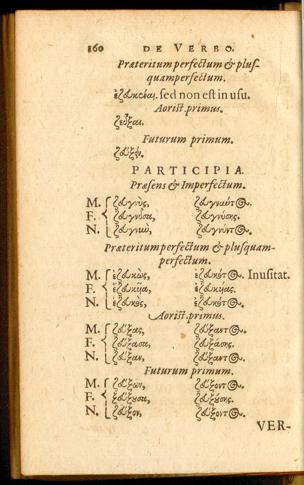 160 DE VERBO.
Præteritum perfectum & plus-
quamperfectum.
ἐζευκέναι. sed non est in usu.
Aorist. primus.
ζεῦξαι.
Futurum primum.
ζεύξειν.
PARTICIPIA.
Præsens & Imperfectum.
M. ζευγνὺς, ζευγνύντος.
F. ζευγνῦσα, ζευγνύσης.
N. ζευγνὺν, ζευγνύντος.
Præteritum perfectum & plusquam-
perfectum.
M. ἐζευκὼς, ἐζευκότος. Inusitat.
F. ἐζευκῦα, ἐζευκύας.
N. ἐζευκὸς, ἐζευκότος.
Aorist. primus.
M. ζεύξας, ζεύξαντος.
F. ζεύξασα, ζευξάσης.
N. ζεῦξαν, ζεύξαντος.
Futurum primum.
M. ζεύξων, ζεύξοντος.
F. ζεύξουσα, ζευξούσης.
N. ζεῦξον, ζεύξοντος.
VER-